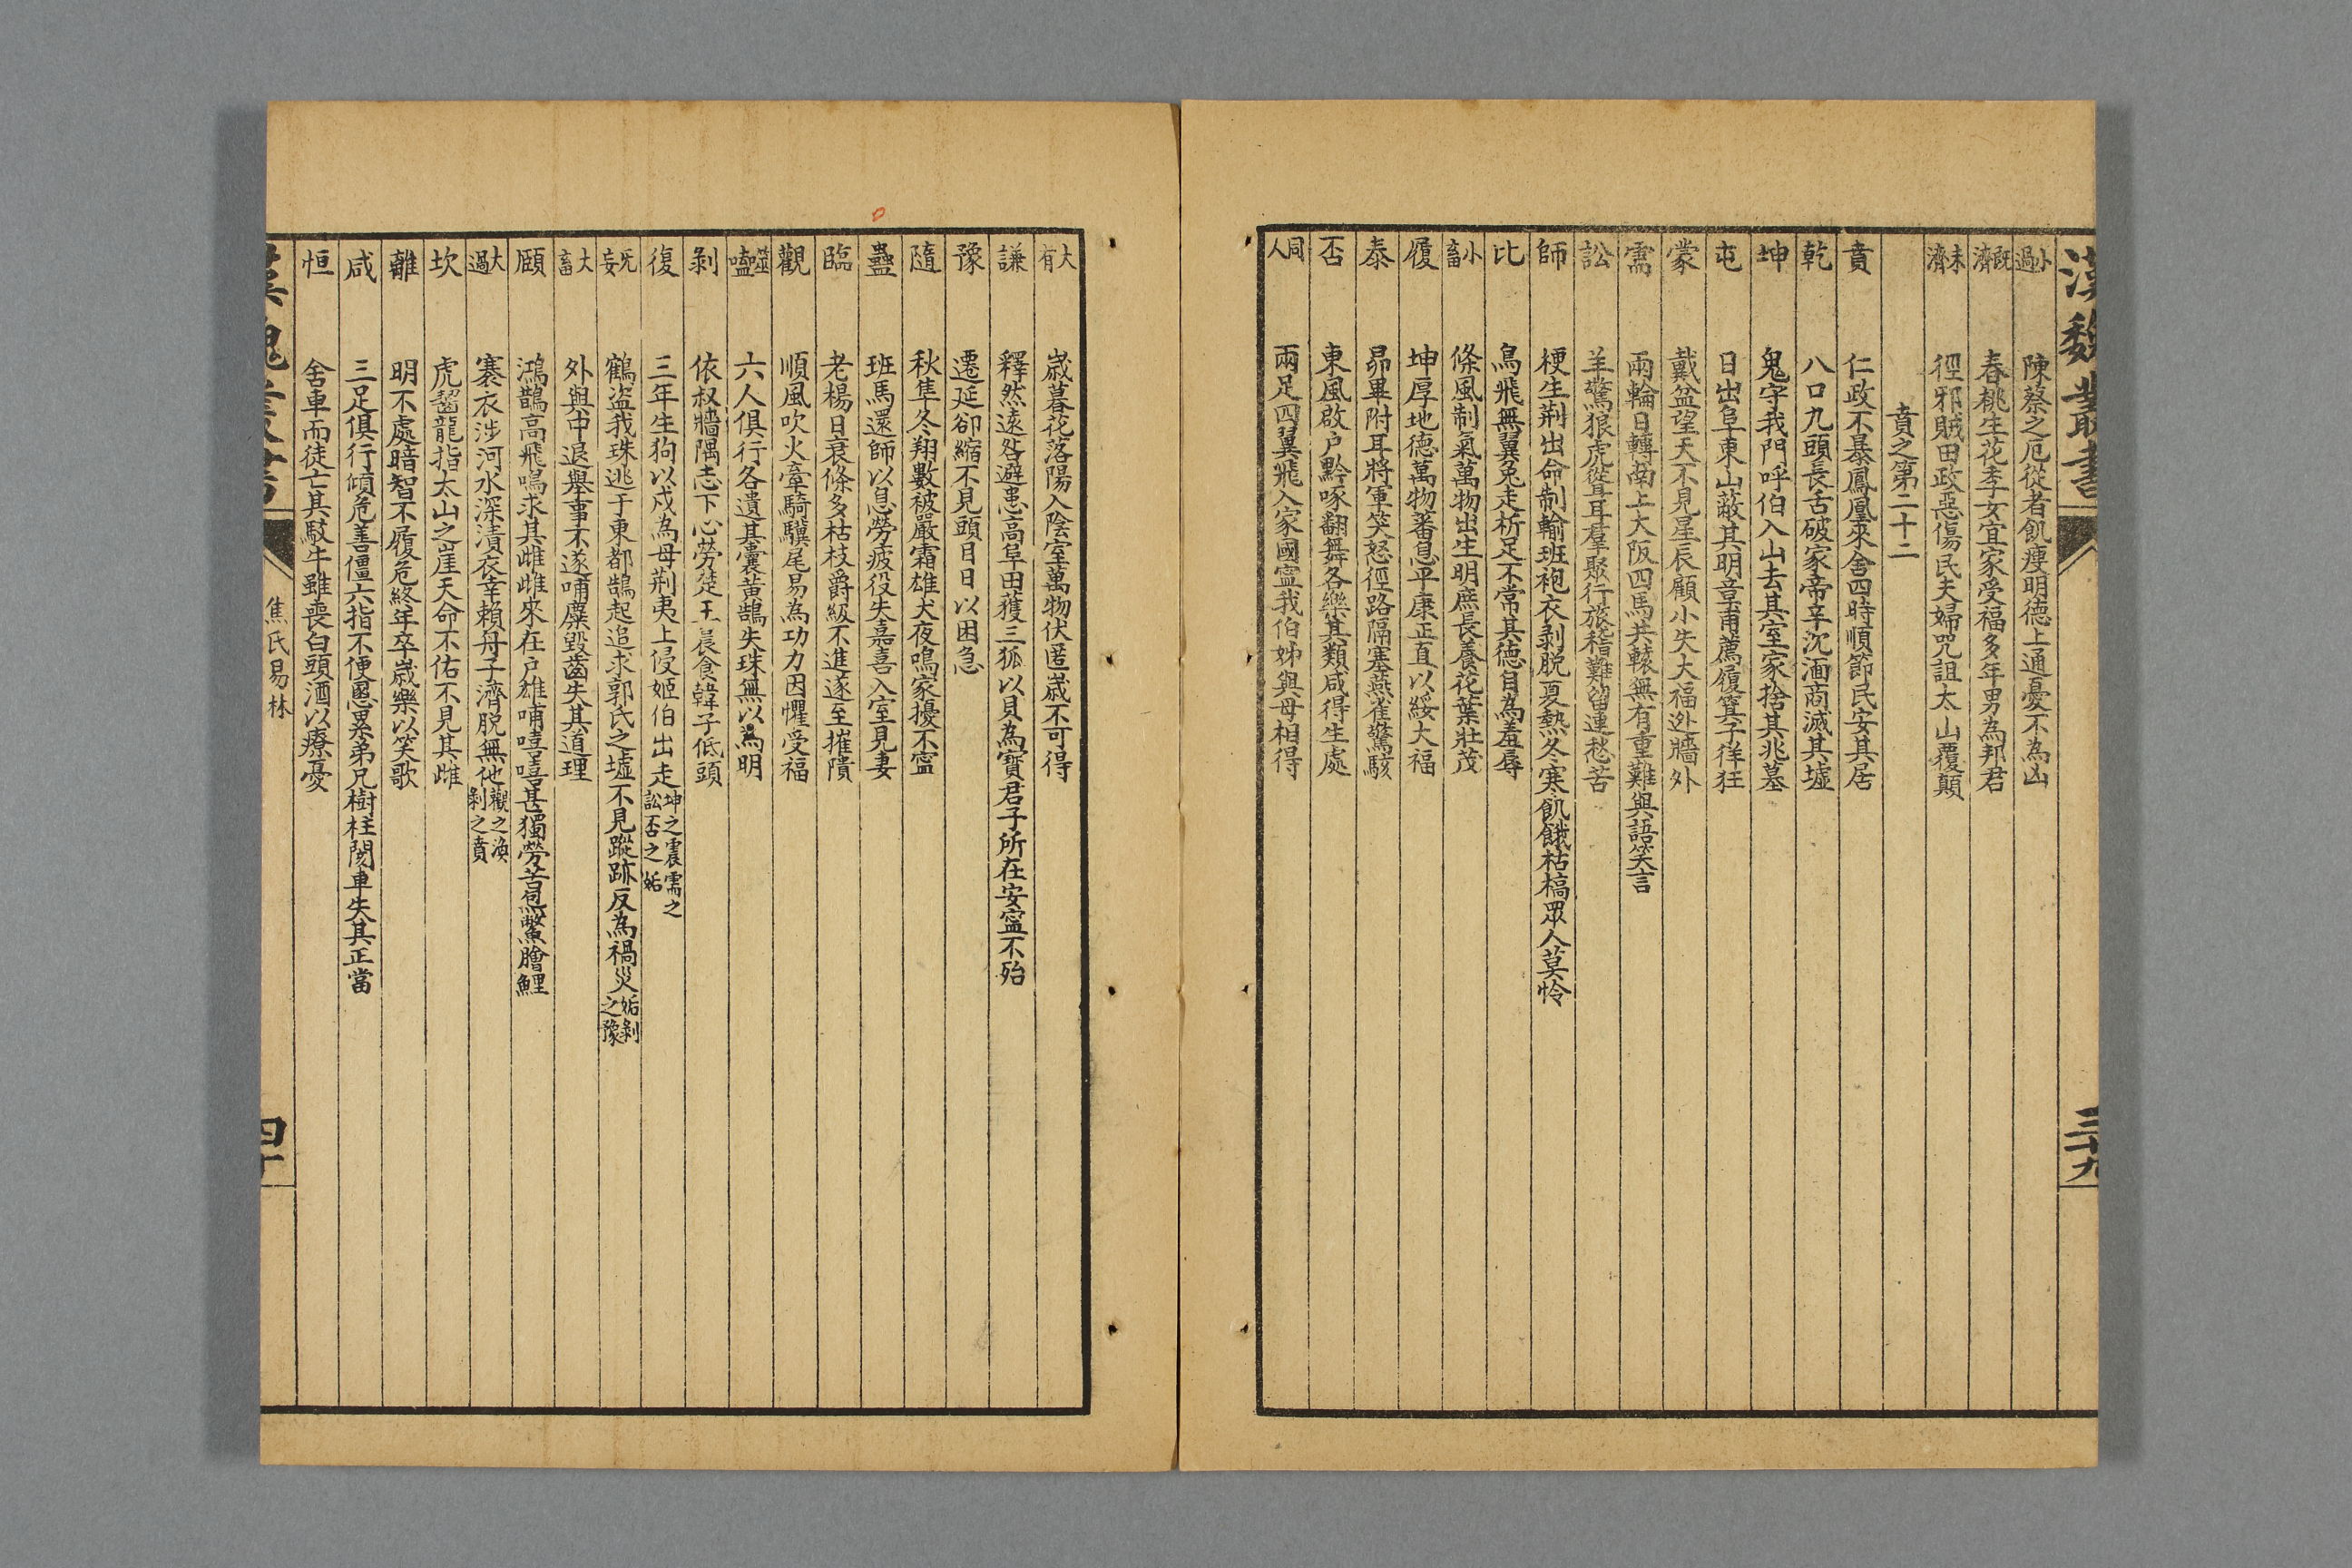 漢魏叢書
三十九
小過 陳蔡之厄從者飢瘦明德上通憂不為凶
既濟 春桃生花季女宜家受福多年男為邦君
未濟 徑邪賊田政惡傷民夫婦咒詛太山覆顛
賁之第二十二
賁 仁政不暴鳳凰來舍四時順節民安其居
乾 八口九頭長舌破家帝辛沈湎商滅其墟
坤 鬼守我門呼伯入山去其室家捨其兆墓
屯 日出阜東山蔽其明章甫薦履箕子徉狂
蒙 戴盆望天不見星辰顧小失大福迯牆外
需 兩輪日轉南上大阪四馬共轅無有重難與語笑言
訟 羊驚狼虎從耳羣聚行旅稽難留連愁苦
師 梗生荆出命制輸班袍衣剥脫夏熱冬寒飢餓枯槁眾人莫怜
比 鳥飛無翼兔走折足不常其德自為羞辱
小畜 條風制氣萬物出生明庶長養花葉壯茂
履 坤厚地德萬物蕃息平康正直以綏大福
泰 昴畢附耳將軍笑怒徑路隔塞燕雀驚駭
否 東風啟户黔啄翻舞各樂其類咸得生處
同人 兩足四翼飛入家國寧我伯姊與母相得
大有 歲暮花落陽入陰室萬物伏匿歲不可得
謙 釋然遠咎避患高阜田獲三狐以貝為寶君子所在安寧不殆
豫 遷延卻縮不見頭目日以困急
隨 秋隼冬翔數被嚴霜雄犬夜鳴家擾不寧
蠱 班馬還師以息勞疲役失嘉喜入室見妻
臨 老楊日衰條多枯枝爵級不進遂至摧隤
觀 順風吹火牽騎驥尾易為功力因懼受福
噬嗑 六人俱行各遺其囊黃鵠失珠無以為明
剝 依叔牆隅志下心勞楚王晨食韓子低頭
復 三年生狗以戍為母荆夷上侵姬伯出走坤之震需之訟否之姤
无妄 鶴盗我珠逃于東都鵠起追求郭氏之墟不見蹤跡反為禍災姤剝之豫
大畜 外與中退舉事不遂哺糜毀齒失其道理
頤 鴻鵠高飛鳴求其雌雌來在户雄哺嘻嘻甚獨勞苦炰鱉膾鯉
大過 褰衣涉河水深漬衣幸賴舟子濟脫無他觀之渙剝之賁
坎 虎齧龍指太山之崖天命不佑不見其雌
離 明不處暗智不履危終年卒歲樂以笑歌
咸 三足俱行傾危善僵六指不便恩累弟兄樹柱閡車失其正當
恒 舍車而徒亡其駁牛雖喪白頭酒以療憂
漢魏叢書
焦氏易林
四十